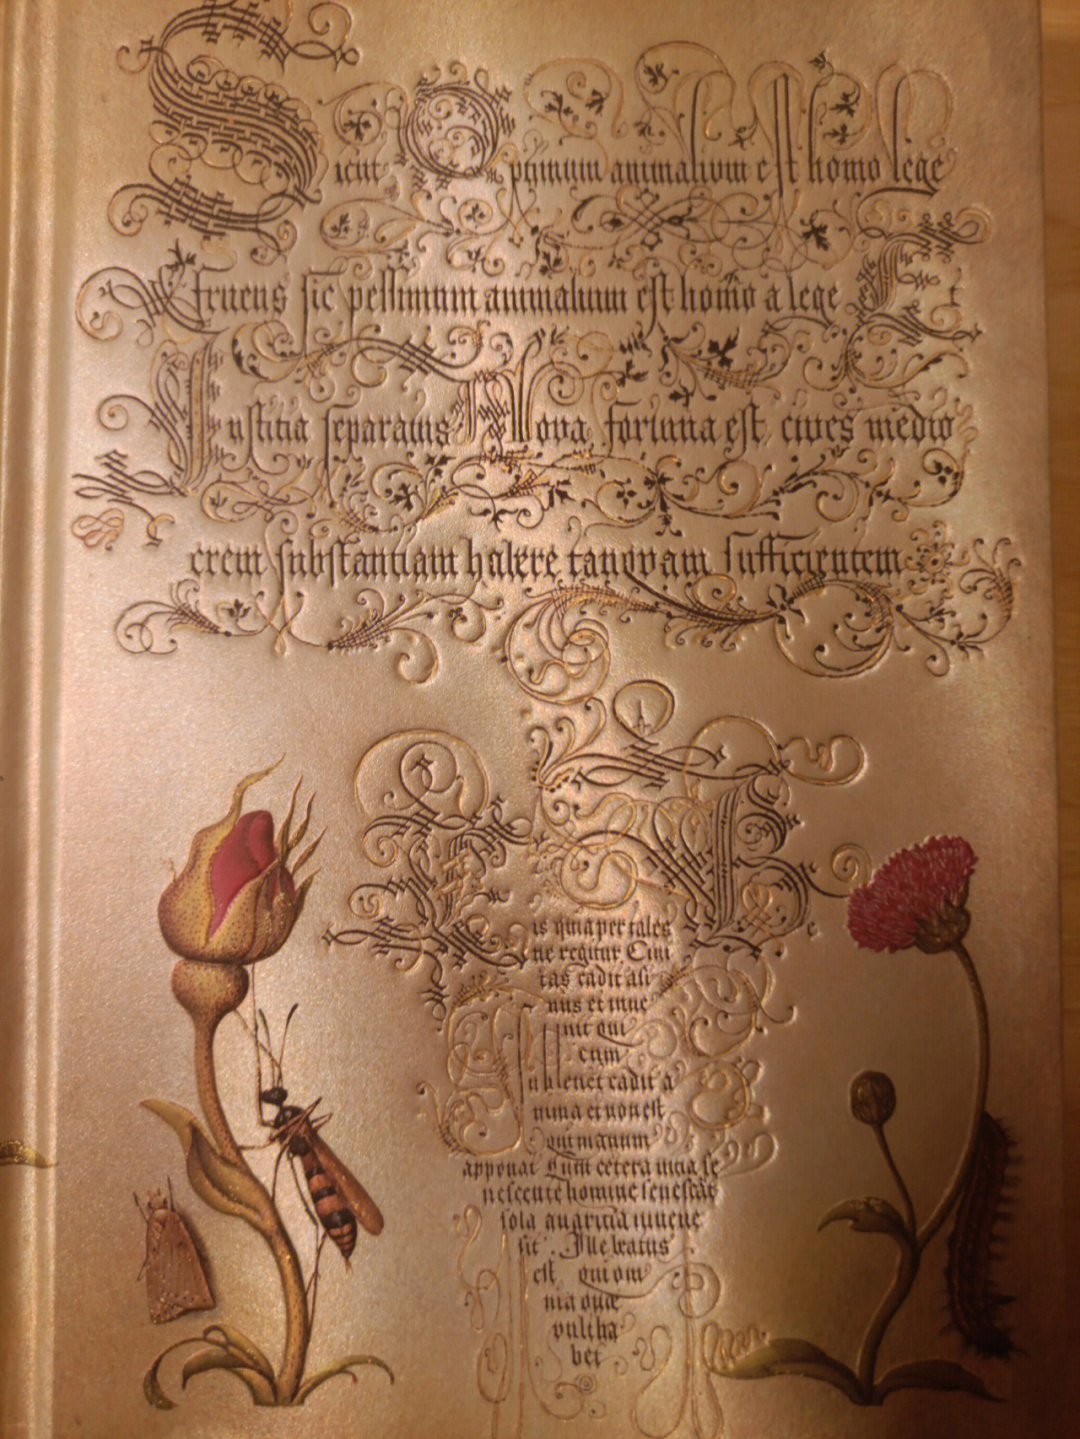 Sicut Optimum animalium est homo lege
fruens sic pessimum animalium est homo a lege Et
Iustitia separatus Nova fortuna est, cives medio
crem substantiam habere tanquam sufficientem
is quia per tales Re
ne regitur, Civi
tas cadit asi
nus et inve
nit qui
cum
sublevet cadit a
nima et non est
qui manum
apponat Cum cetera vitia se
nescente homine senescat
sola avaritia iuvene
sit. Ille beatus
est qui om
nia quae
vult ha
bet